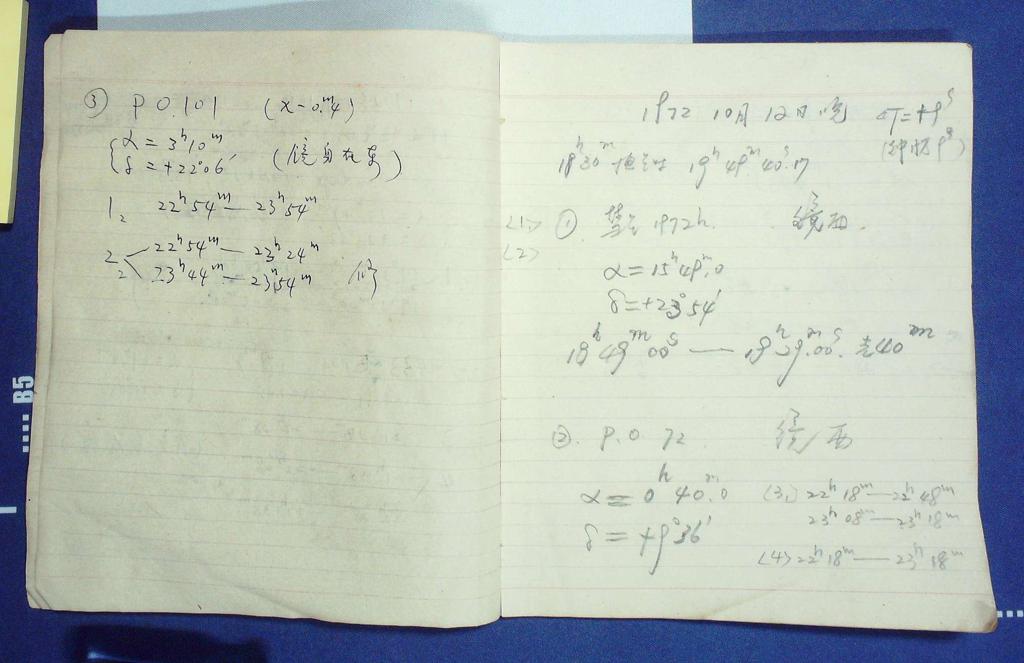 ③ P O.101 (x-0.ᵐ4)
α = 3ʰ10ᵐ
δ = +22°06′ (镜身在东)
1₂ 22ʰ54ᵐ — 23ʰ54ᵐ
2₂ 22ʰ54ᵐ — 23ʰ24ᵐ
23ʰ44ᵐ — 23ʰ54ᵐ
1972 10月 12日 晚 ΔT=+9ˢ
18ʰ30ᵐ 恒星时 19ʰ49ᵐ40ˢ.17 (钟快9ˢ)
<1> ① 彗星 1972h. 镜西.
<2>
α = 15ʰ49ᵐ.0
δ = +23°54′
18ʰ49ᵐ00ˢ — 19ʰ29ᵐ.00ˢ. 40ᵐ
②. P.O 72. 镜西
α = 0ʰ40ᵐ.0 (3.) 22ʰ18ᵐ — 22ʰ48ᵐ
23ʰ08ᵐ — 23ʰ18ᵐ
δ = +9°36′
(4) 22ʰ18ᵐ — 23ʰ18ᵐ
B5